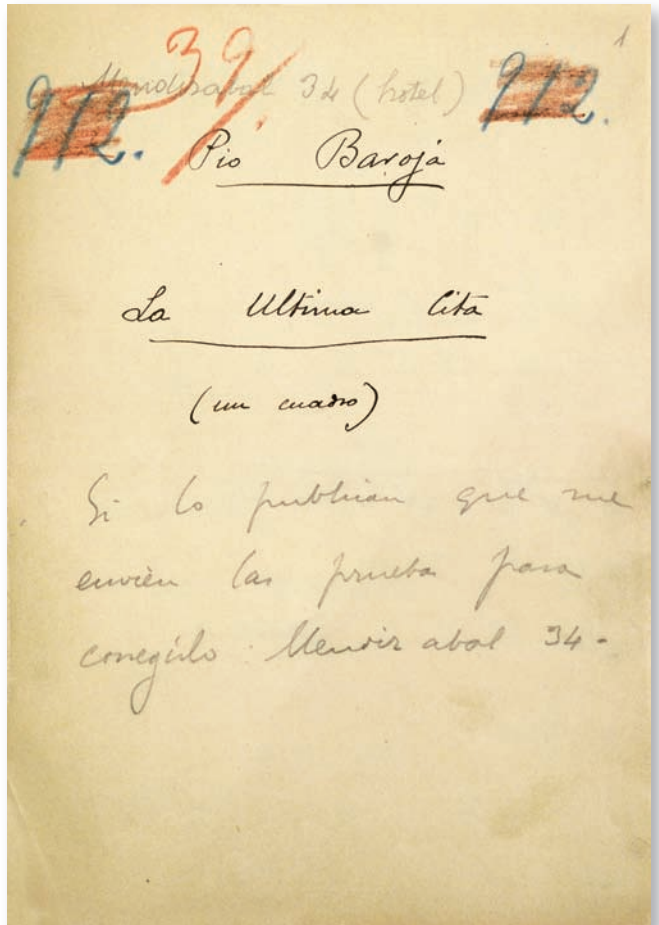 1
39
Mendizabal 34 (hotel)
912.
912.
Pio Baroja
La Ultima Cita
(un cuadro)
Si lo publican que me
envien las prueba para
corregirlo. Mendizabal 34-